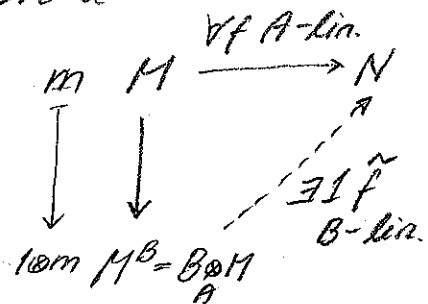 ∀f A-lin.
m M N
∃1 f̃
B-lin.
1⊗m M^B = B⊗M
A